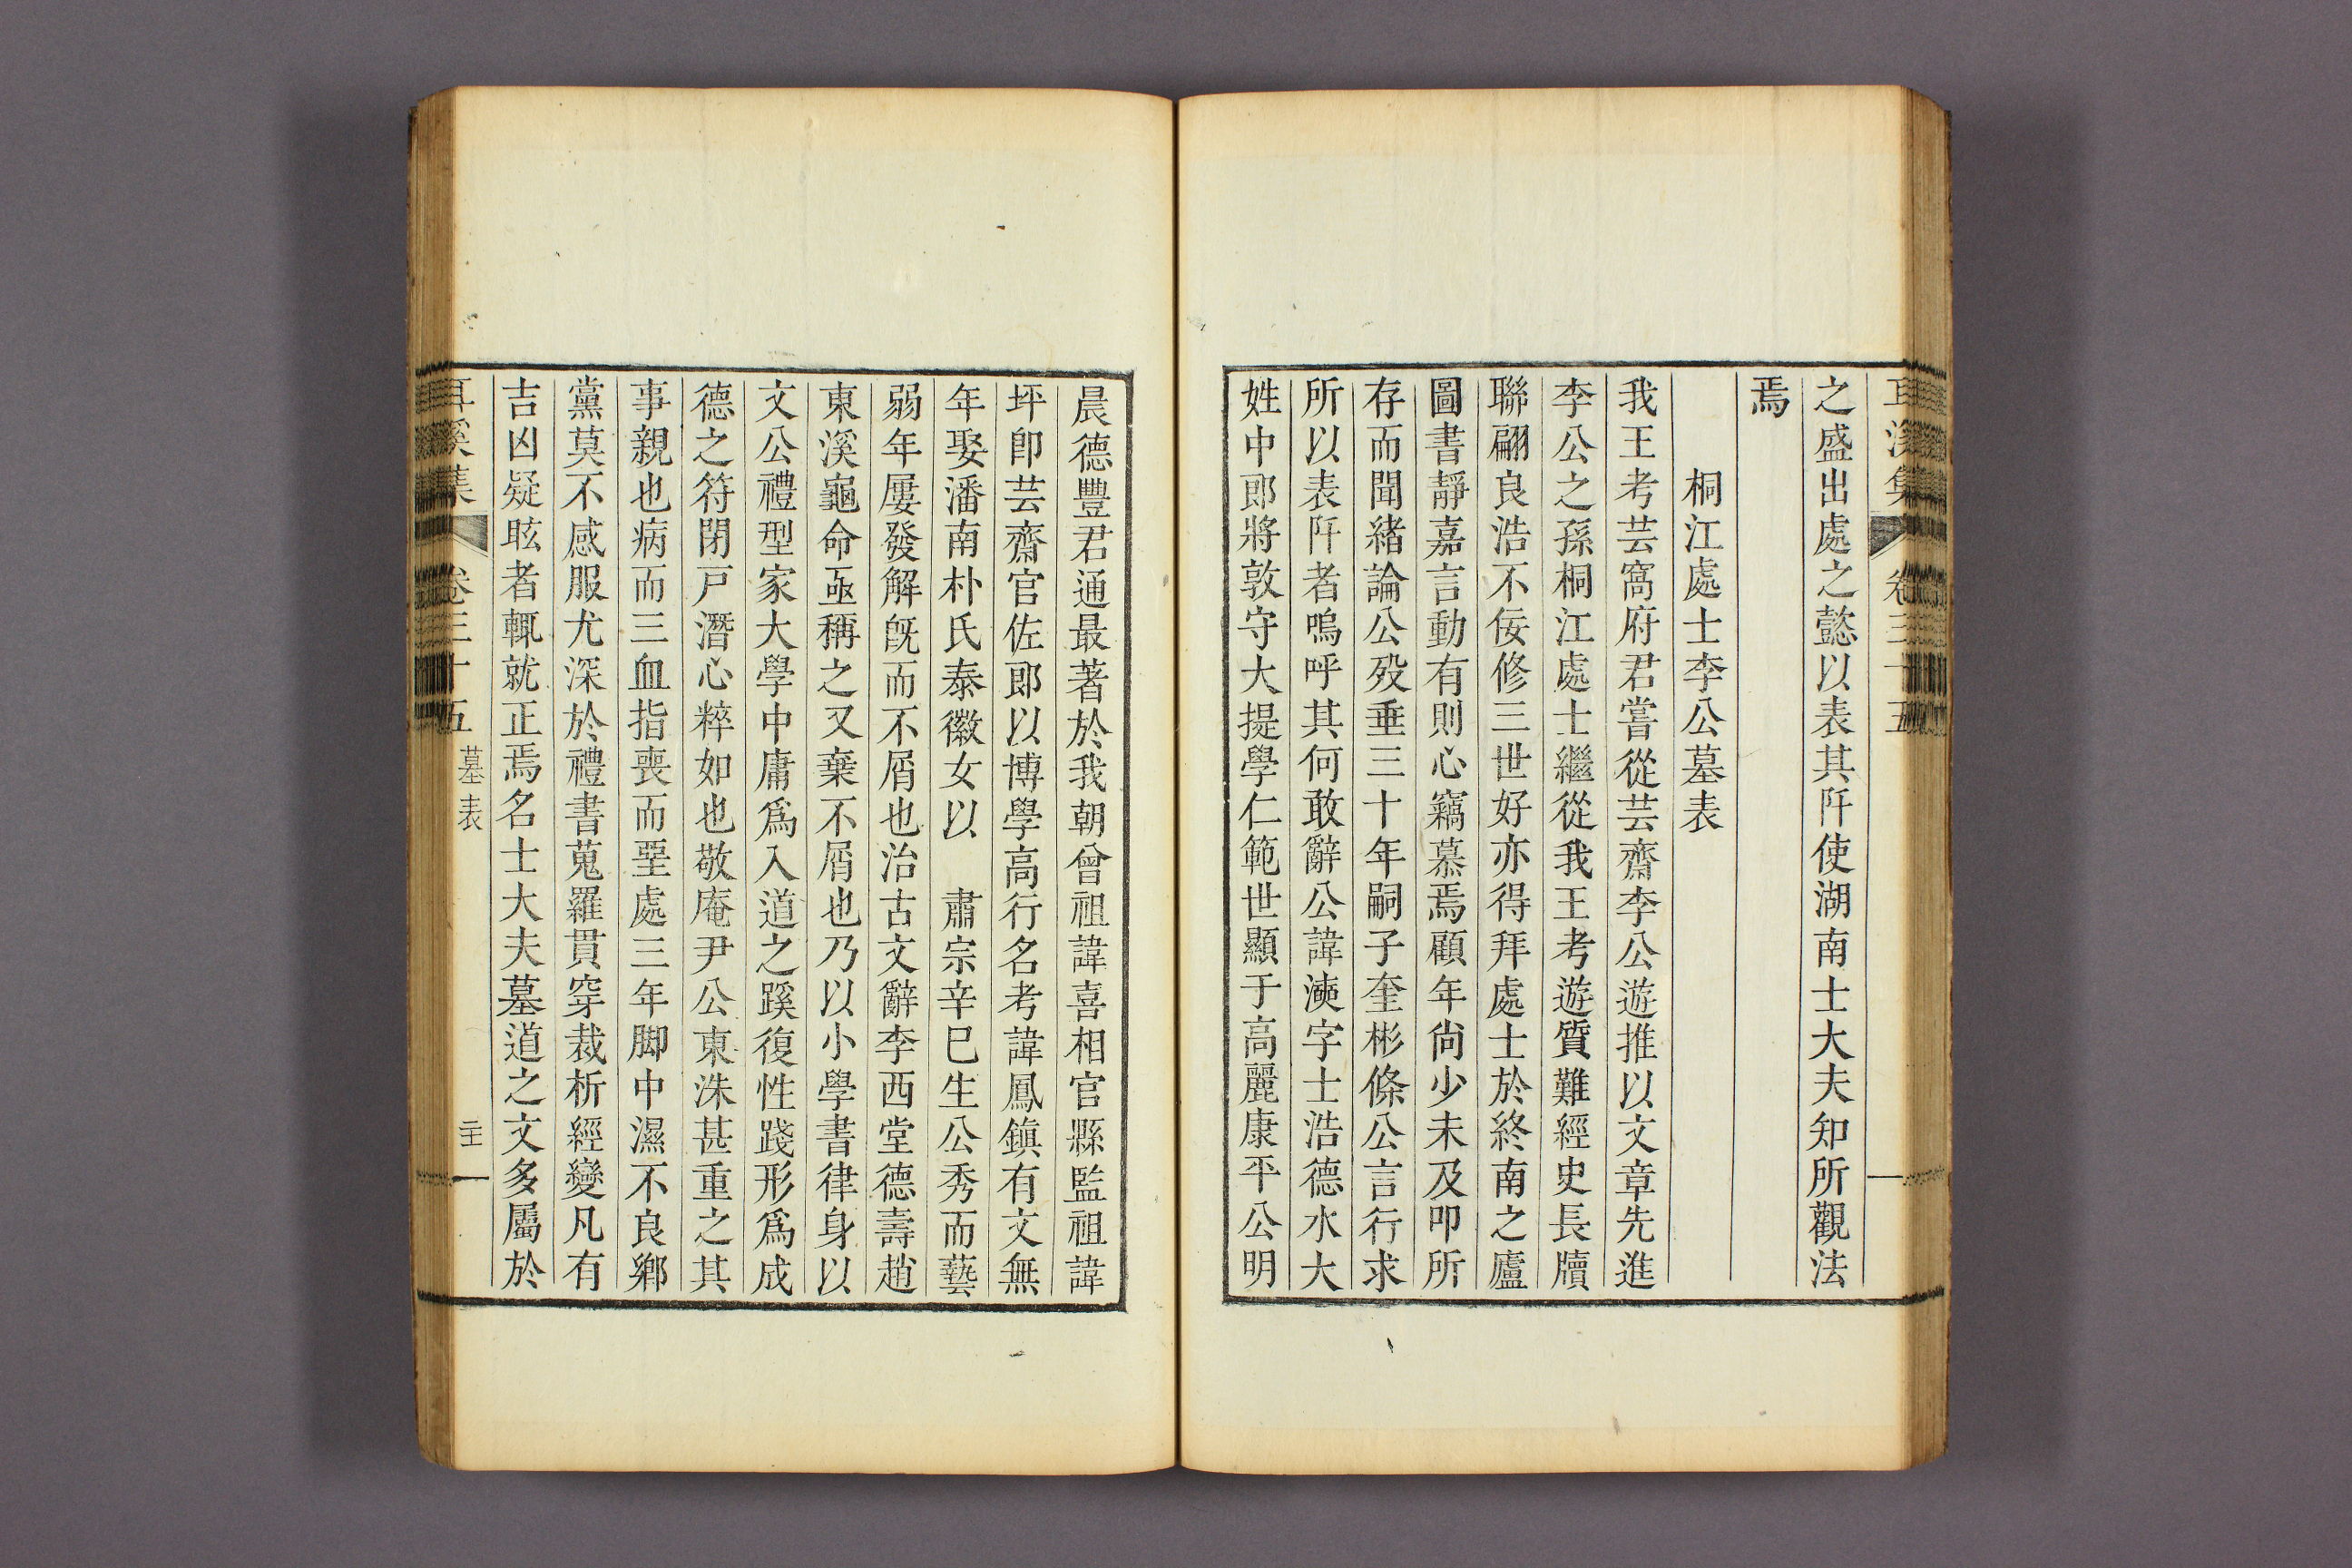 耳溪集 卷三十五
之盛出處之懿以表其阡使湖南士大夫知所觀法
焉
桐江處士李公墓表
我王考芸窩府君嘗從芸齋李公遊推以文章先進
李公之孫桐江處士繼從我王考遊質難經史長牘
聯翩良浩不佞修三世好亦得拜處士於終南之廬
圖書靜嘉言動有則心竊慕焉顧年尙少未及叩所
存而聞緖論公歿垂三十年嗣子奎彬條公言行求
所以表阡者嗚呼其何敢辭公諱浹字士浩德水大
姓中郎將敦守大提學仁範世顯于高麗康平公明
晨德豐君通最著於我朝曾祖諱喜相官縣監祖諱
坪卽芸齋官佐郎以博學高行名考諱鳳鎭有文無
年娶潘南朴氏泰徽女以 肅宗辛巳生公秀而藝
弱年屢發解旣而不屑也治古文辭李西堂德壽趙
東溪龜命亟稱之又棄不屑也乃以小學書律身以
文公禮型家大學中庸爲入道之蹊復性踐形爲成
德之符閉戶潛心粹如也敬庵尹公東洙甚重之其
事親也病而三血指喪而堊處三年脚中濕不良鄉
黨莫不感服尤深於禮書蒐羅貫穿裁析經變凡有
吉凶疑眩者輒就正焉名士大夫墓道之文多屬於
耳溪集 卷三十五 墓表